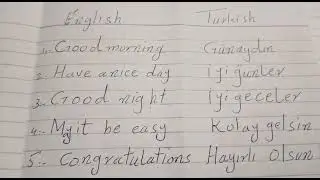 English Turkish
1. Good morning Günaydın
2. Have a nice day İyi günler
3. Good night İyi geceler
4. May it be easy Kolay gelsin
5. Congratulations Hayırlı Olsun